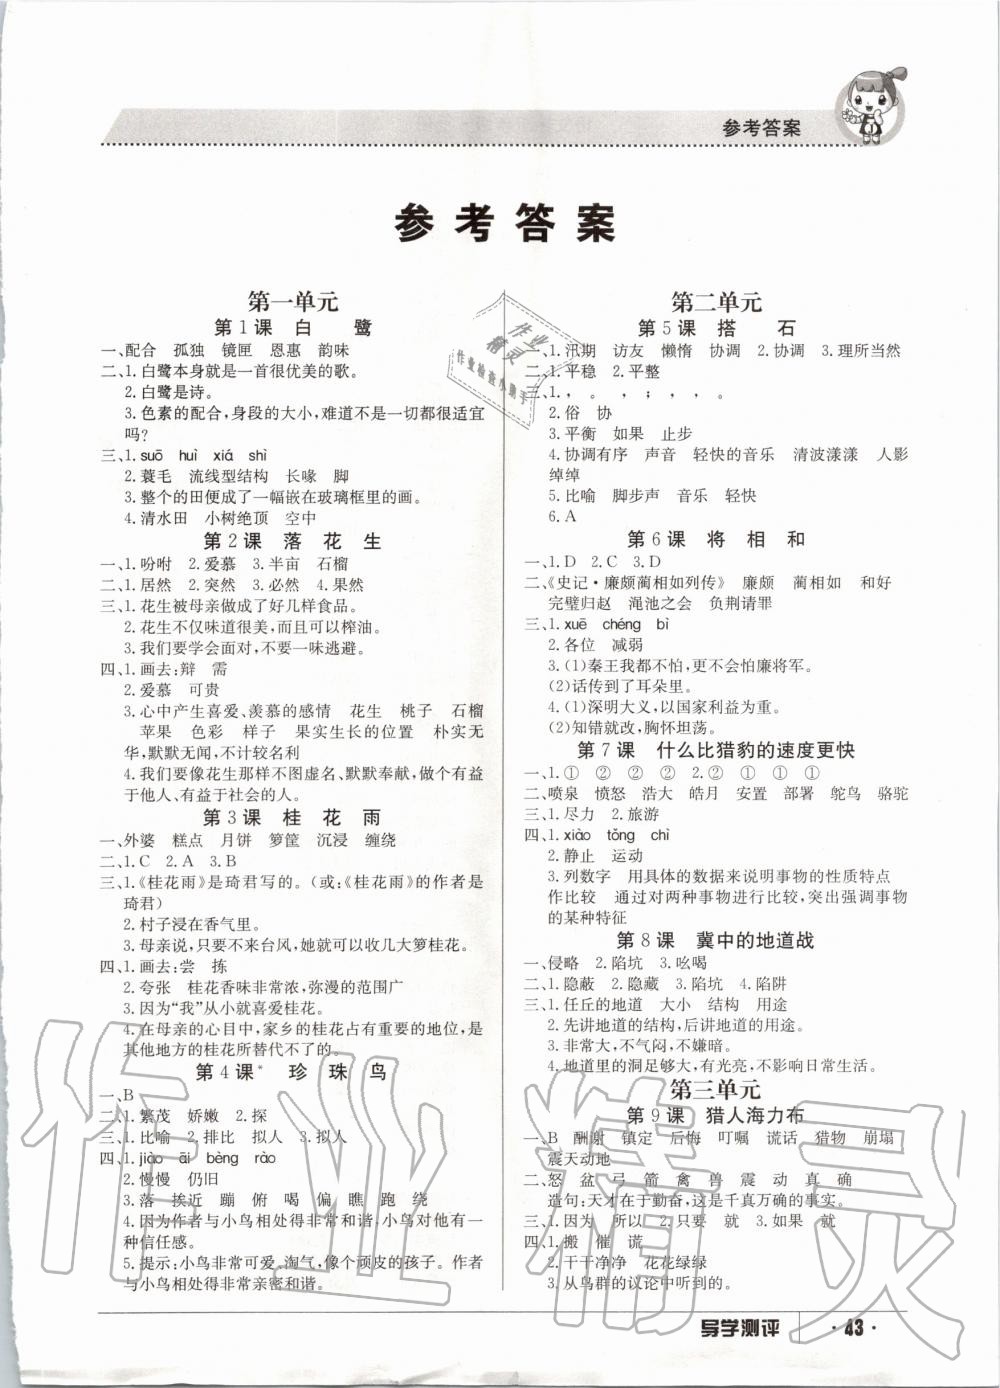 参考答案
参考答案
第一单元
第1课 白 鹭
一、配合 孤独 镜匣 恩惠 韵味
二、1.白鹭本身就是一首很优美的歌。
2.白鹭是诗。
3.色素的配合,身段的大小,难道不是一切都很适宜
吗?
三、1.suō huì xiá shì
2.蓑毛 流线型结构 长喙 脚
3.整个的田便成了一幅嵌在玻璃框里的画。
4.清水田 小树绝顶 空中
第2课 落 花 生
一、1.吩咐 2.爱慕 3.半亩 石榴
二、1.居然 2.突然 3.必然 4.果然
三、1.花生被母亲做成了好几样食品。
2.花生不仅味道很美,而且可以榨油。
3.我们要学会面对,不要一味逃避。
四、1.画去:辩 需
2.爱慕 可贵
3.心中产生喜爱、羡慕的感情 花生 桃子 石榴
苹果 色彩 样子 果实生长的位置 朴实无
华,默默无闻,不计较名利
4.我们要像花生那样不图虚名、默默奉献,做个有益
于他人、有益于社会的人。
第3课 桂 花 雨
一、外婆 糕点 月饼 箩筐 沉浸 缠绕
二、1.C 2.A 3.B
三、1.《桂花雨》是琦君写的。(或:《桂花雨》的作者是
琦君)
2.村子浸在香气里。
3.母亲说,只要不来台风,她就可以收几大箩桂花。
四、1.画去:尝 拣
2.夸张 桂花香味非常浓,弥漫的范围广
3.因为“我”从小就喜爱桂花。
4.在母亲的心目中,家乡的桂花占有重要的地位,是
其他地方的桂花所替代不了的。
第4课* 珍 珠 鸟
一、B
二、1.繁茂 娇嫩 2.探
三、1.比喻 2.排比 拟人 3.拟人
四、1.jiào āi bèng rào
2.慢慢 仍旧
3.落 挨近 蹦 俯 喝 偏 瞧 跑 绕
4.因为作者与小鸟相处得非常和谐,小鸟对作者有一
种信任感。
5.提示:小鸟非常可爱、淘气,像个顽皮的孩子。作者
与小鸟相处得非常亲密和谐。
第二单元
第5课 搭 石
一、1.汛期 访友 懒惰 协调 2.协调 3.理所当然
二、1.平稳 2.平整
三、1., 。 , ; , , 。
2.俗 协
3.平衡 如果 止步
4.协调有序 声音 轻快的音乐 清波漾漾 人影
绰绰
5.比喻 脚步声 音乐 轻快
6.A
第6课 将 相 和
一、1.D 2.C 3.D
二、《史记·廉颇蔺相如列传》 廉颇 蔺相如 和好
完璧归赵 渑池之会 负荆请罪
三、1.xuē chéng bì
2.各位 减弱
3.(1)秦王我都不怕,更不会怕廉将军。
(2)话传到了耳朵里。
4.(1)深明大义,以国家利益为重。
(2)知错就改,胸怀坦荡。
第7课 什么比猎豹的速度更快
一、1.① ② ② ② 2.② ① ① ①
二、喷泉 愤怒 浩大 皓月 安置 部署 鸵鸟 骆驼
三、1.尽力 2.旅游
四、1.xiào tǒng chì
2.静止 运动
3.列数字 用具体的数据来说明事物的性质特点
作比较 通过对两种事物进行比较,突出强调事物
的某种特征
第8课 冀中的地道战
一、1.侵略 2.陷坑 3.吆喝
二、1.隐蔽 2.隐藏 3.陷坑 4.陷阱
三、1.任丘的地道 大小 结构 用途
2.先讲地道的结构,后讲地道的用途。
3.非常大,不气闷,不嫌暗。
4.地道里的洞足够大,有光亮,不影响正常生活。
第三单元
第9课 猎人海力布
一、B 酬谢 镇定 后悔 叮嘱 谎话 猎物 崩塌
震天动地
二、怒 盆 弓 箭 禽 兽 震 动 真 确
造句:天才在于勤奋,这是千真万确的事实。
三、1.因为 所以 2.只要 就 3.如果 就
四、1.搬 催 谎
2.干干净净 花花绿绿
3.从鸟群的议论中听到的。
导学测评 ·43·
作业精灵
作业检查小助手
作业精灵